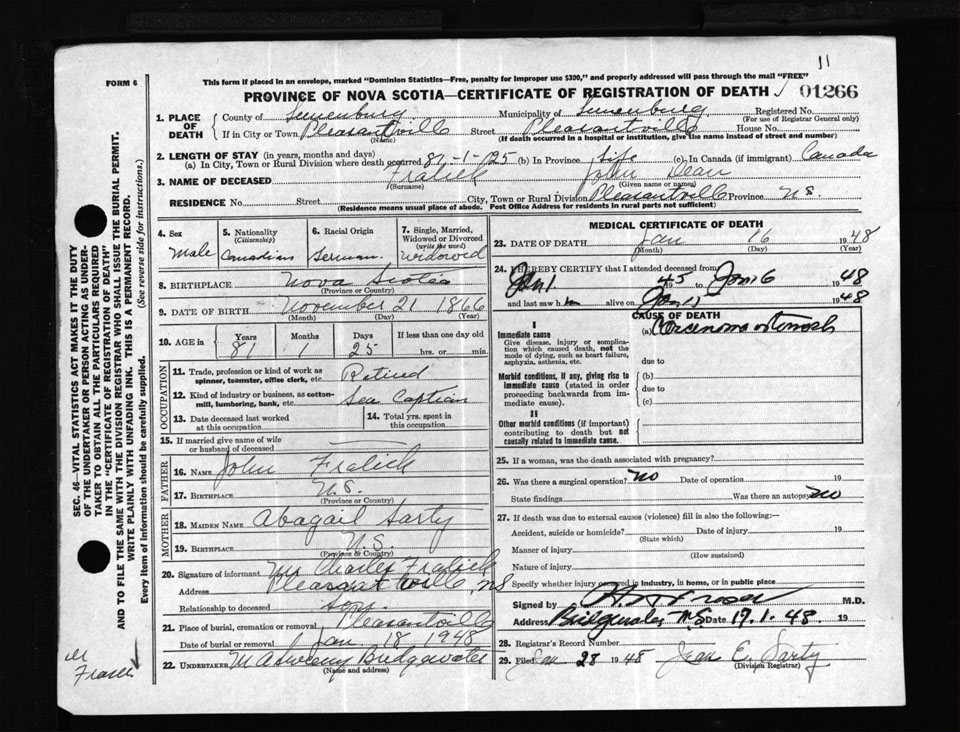 11
FORM 6
This form if placed in an envelope, marked "Dominion Statistics—Free, penalty for improper use $300," and properly addressed will pass through the mail "FREE"
PROVINCE OF NOVA SCOTIA—CERTIFICATE OF REGISTRATION OF DEATH 01266
1. PLACE OF DEATH
County of Lunenburg Municipality of Lunenburg Registered No.
(For use of Registrar General only)
If in City or Town Pleasantville Street Pleasantville House No.
(Name) (If death occurred in a hospital or institution, give the name instead of street and number)
2. LENGTH OF STAY (in years, months and days)
(a) In City, Town or Rural Division where death occurred 81-1-25 (b) In Province life (c) In Canada (if immigrant) Canada
3. NAME OF DECEASED Fralick John Dean
(Surname) (Given name or names)
RESIDENCE No. Street City, Town or Rural Division Pleasantville Province N.S.
(Residence means usual place of abode. Post Office Address for residents in rural parts not sufficient)
4. Sex
Male
5. Nationality
(Citizenship)
Canadian
6. Racial Origin
German
7. Single, Married, Widowed or Divorced
(write the word)
Widowed
8. BIRTHPLACE Nova Scotia
(Province or Country)
9. DATE OF BIRTH November 21 1866
(Month) (Day) (Year)
10. AGE in
Years Months Days If less than one day old
81 1 25 hrs. or min.
OCCUPATION
11. Trade, profession or kind of work as spinner, teamster, office clerk, etc. Retired
12. Kind of industry or business, as cotton-mill, lumbering, bank, etc. Sea Captain
13. Date deceased last worked at this occupation
14. Total yrs. spent in this occupation
15. If married give name of wife or husband of deceased
FATHER
16. NAME John Fralick
17. BIRTHPLACE N.S.
(Province or Country)
MOTHER
18. MAIDEN NAME Abagail Sarty
19. BIRTHPLACE N.S.
(Province & Country)
20. Signature of informant Mr Charles Fralick
Address Pleasantville, NS
Relationship to deceased Son
21. Place of burial, cremation or removal Pleasantville
Date of burial or removal Jan 18 1948
22. UNDERTAKER Bridgewater
(Name and address)
MEDICAL CERTIFICATE OF DEATH
23. DATE OF DEATH Jan 16 1948
(Month) (Day)
24. I HEREBY CERTIFY that I attended deceased from
Jan 1 1945 to Jan 16 1948
and last saw h im alive on Jan 15 1948
CAUSE OF DEATH
I
Immediate cause
Give disease, injury or complication which caused death, not the mode of dying, such as heart failure, asphyxia, asthenia, etc.
(a) Carcinoma stomach
due to
Morbid conditions, if any, giving rise to immediate cause (stated in order proceeding backwards from immediate cause).
(b)
due to
(c)
II
Other morbid conditions (if important) contributing to death but not causally related to immediate cause.
25. If a woman, was the death associated with pregnancy?
26. Was there a surgical operation? no Date of operation 19
State findings Was there an autopsy no
27. If death was due to external causes (violence) fill in also the following:—
Accident, suicide or homicide? Date of injury 19
(State which)
Manner of injury
(How sustained)
Nature of injury
Specify whether injury occurred in industry, in home, or in public place
Signed by Fraser M.D.
Address Bridgewater N.S Date 17.1.48. 19
28. Registrar's Record Number
29. Filed Jan 28 1948 Jean E. Sarty
(Division Registrar)
SEC. 46—VITAL STATISTICS ACT MAKES IT THE DUTY
OF THE UNDERTAKER OR PERSON ACTING AS UNDERTAKER TO OBTAIN ALL THE PARTICULARS REQUIRED
IN THE "CERTIFICATE OF REGISTRATION OF DEATH"
AND TO FILE THE SAME WITH THE DIVISION REGISTRAR WHO SHALL ISSUE THE BURIAL PERMIT.
WRITE PLAINLY WITH UNFADING INK. THIS IS A PERMANENT RECORD.
Every item of information should be carefully supplied. (See reverse side for instructions.)
Dr
Fraser